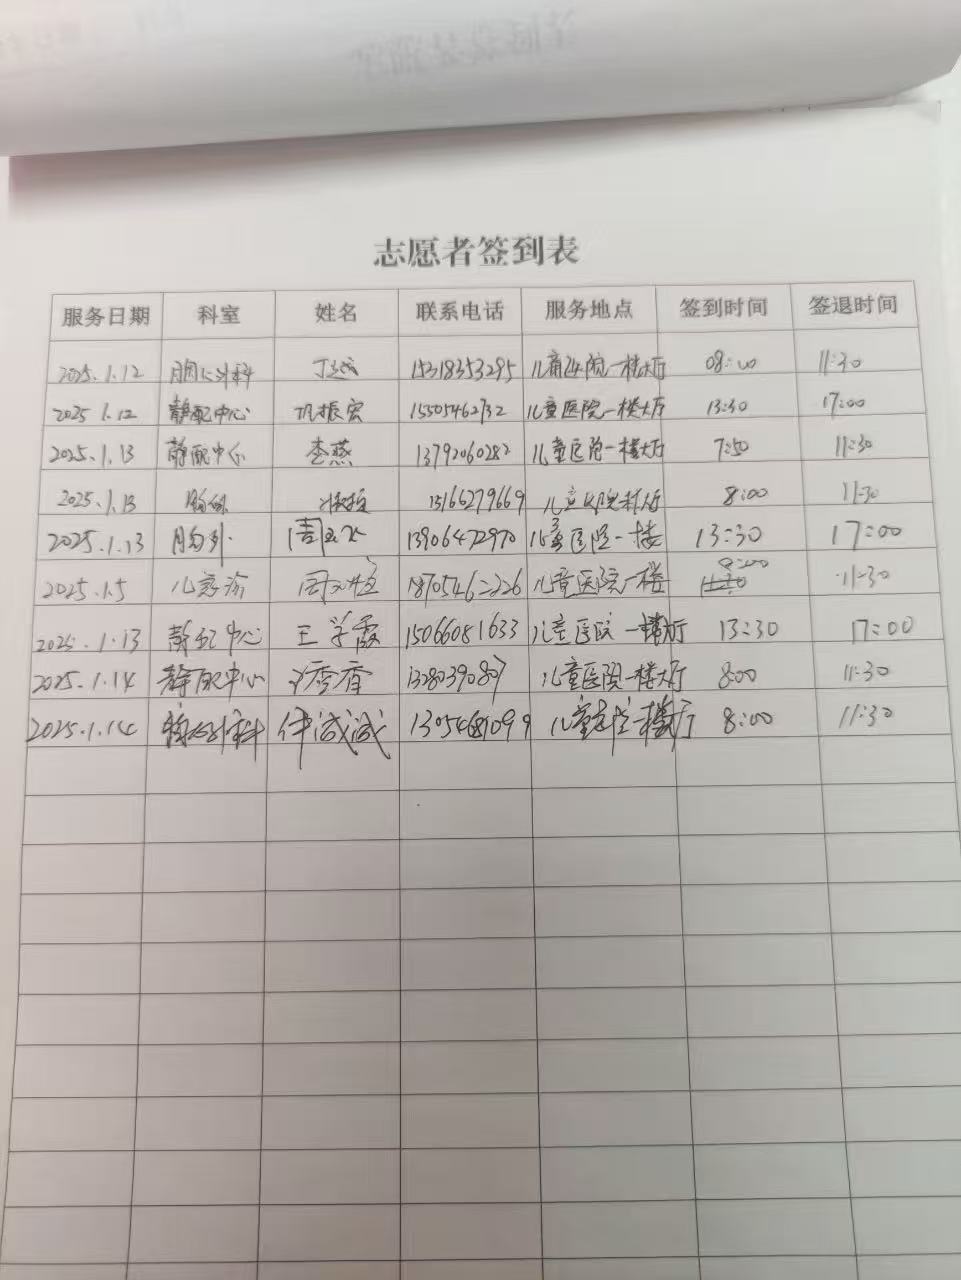 志愿者签到表
服务日期 科室 姓名 联系电话 服务地点 签到时间 签退时间
2025.1.12 胸心外科 15318353295 儿童医院一楼大厅 08:00 11:30
2025.1.12 静配中心 巩振宏 15505462732 儿童医院一楼大厅 13:30 17:00
2025.1.13 静配中心 李燕 13792060282 儿童医院一楼大厅 7:50 11:30
2025.1.13 15166279669 儿童医院 8:00 11:30
2025.1.13 胸外 13906472970 儿童医院一楼 13:30 17:00
2025.1.5 儿诊 儿童医院一楼 8:00 11:30
2025.1.13 静配中心 王学霞 15066081633 儿童医院一楼大厅 13:30 17:00
2025.1.14 静配中心 秀香 儿童医院一楼大厅 8:00 11:30
2025.1.14 外科 诚诚 儿童 一楼大厅 8:00 11:30